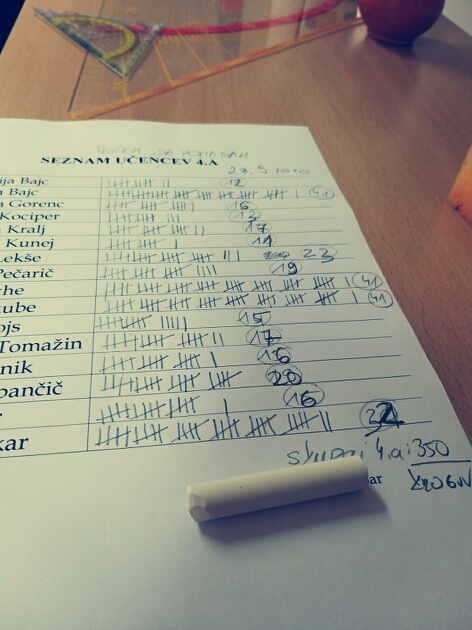 TEČEM, DA POMAGAM
SEZNAM UČENCEV 4.A
23.9.2020
ija Bajc 12
Bajc 41
Gorenc 16
Kociper 13
Kralj 17
Kunej 11
Lekše 23
Pečarič 19
he 41
ube 41
ojs 15
Tomažin 17
nik 16
pančič 20
16
kar 32
skupaj 4.a: 350
ar KROGOV